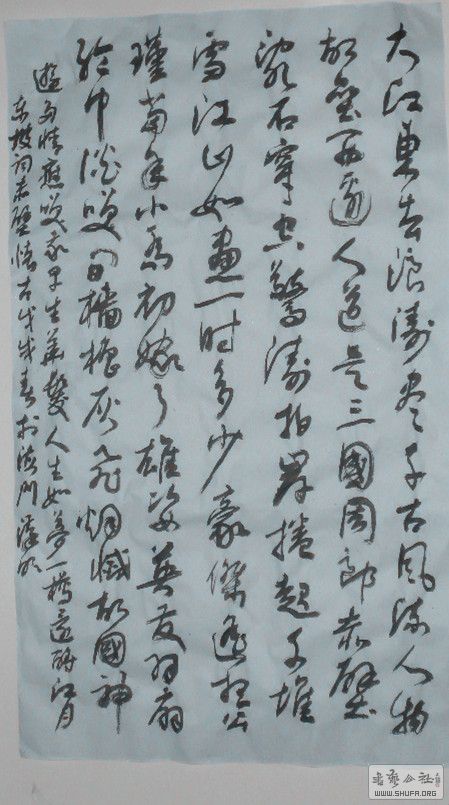 大江東去浪濤盡千古風流人物
故壘西邊人道是三國周郎赤壁
亂石穿空驚濤拍岸捲起千堆
雪江山如畫一时多少豪傑遙想公
瑾當年小喬初嫁了雄姿英发羽扇
綸巾談笑间檣櫓灰飛烟滅故國神
遊多情應笑我早生華髮人生如夢一樽還酹江月
東坡词赤壁懷古戊戌春於
書艺公社
WWW.SHUFA.ORG